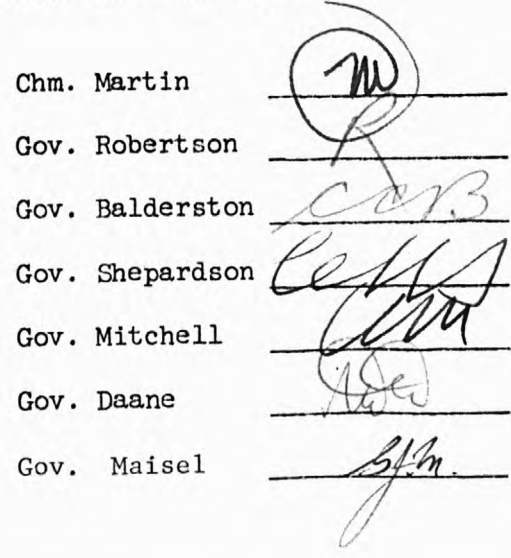 Chm. Martin M
Gov. Robertson R
Gov. Balderston CCB
Gov. Shepardson
Gov. Mitchell
Gov. Daane
Gov. Maisel SJM.